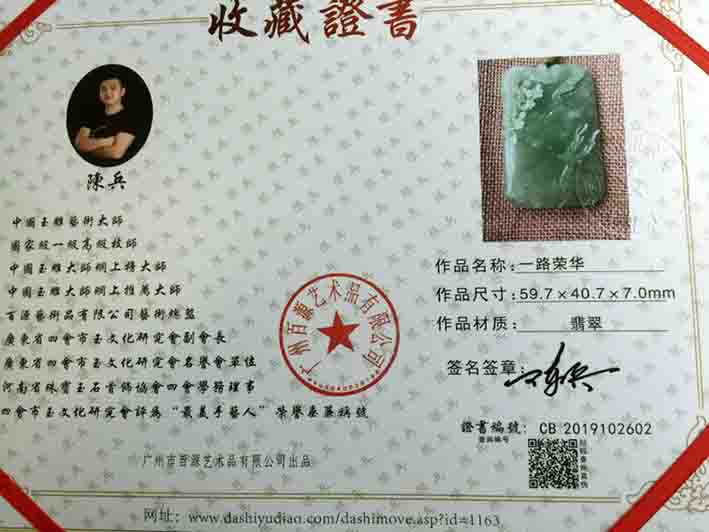 收藏證書
陳兵
中國玉雕藝術大師
國家級一級高級技師
中國玉雕大師網上榜大師
中國玉雕大師網上推薦大師
百源藝術品有限公司藝術總監
廣東省四會市玉文化研究會副會長
廣東省四會市玉文化研究會名譽會單位
河南省珠寶玉石首飾協會四會學務理事
四會市玉文化研究會評爲“最美手藝人”榮譽稱號
广州市百源艺术品有限公司出品
作品名称：一路荣华
作品尺寸：59.7×40.7×7.0mm
作品材质：翡翠
签名签章：
證書編號：CB 2019102602
查詢编号
扫码查询真伪
广州百源艺术品有限公司
网址：www.dashiyudiao.com/dashimove.asp?id=1163